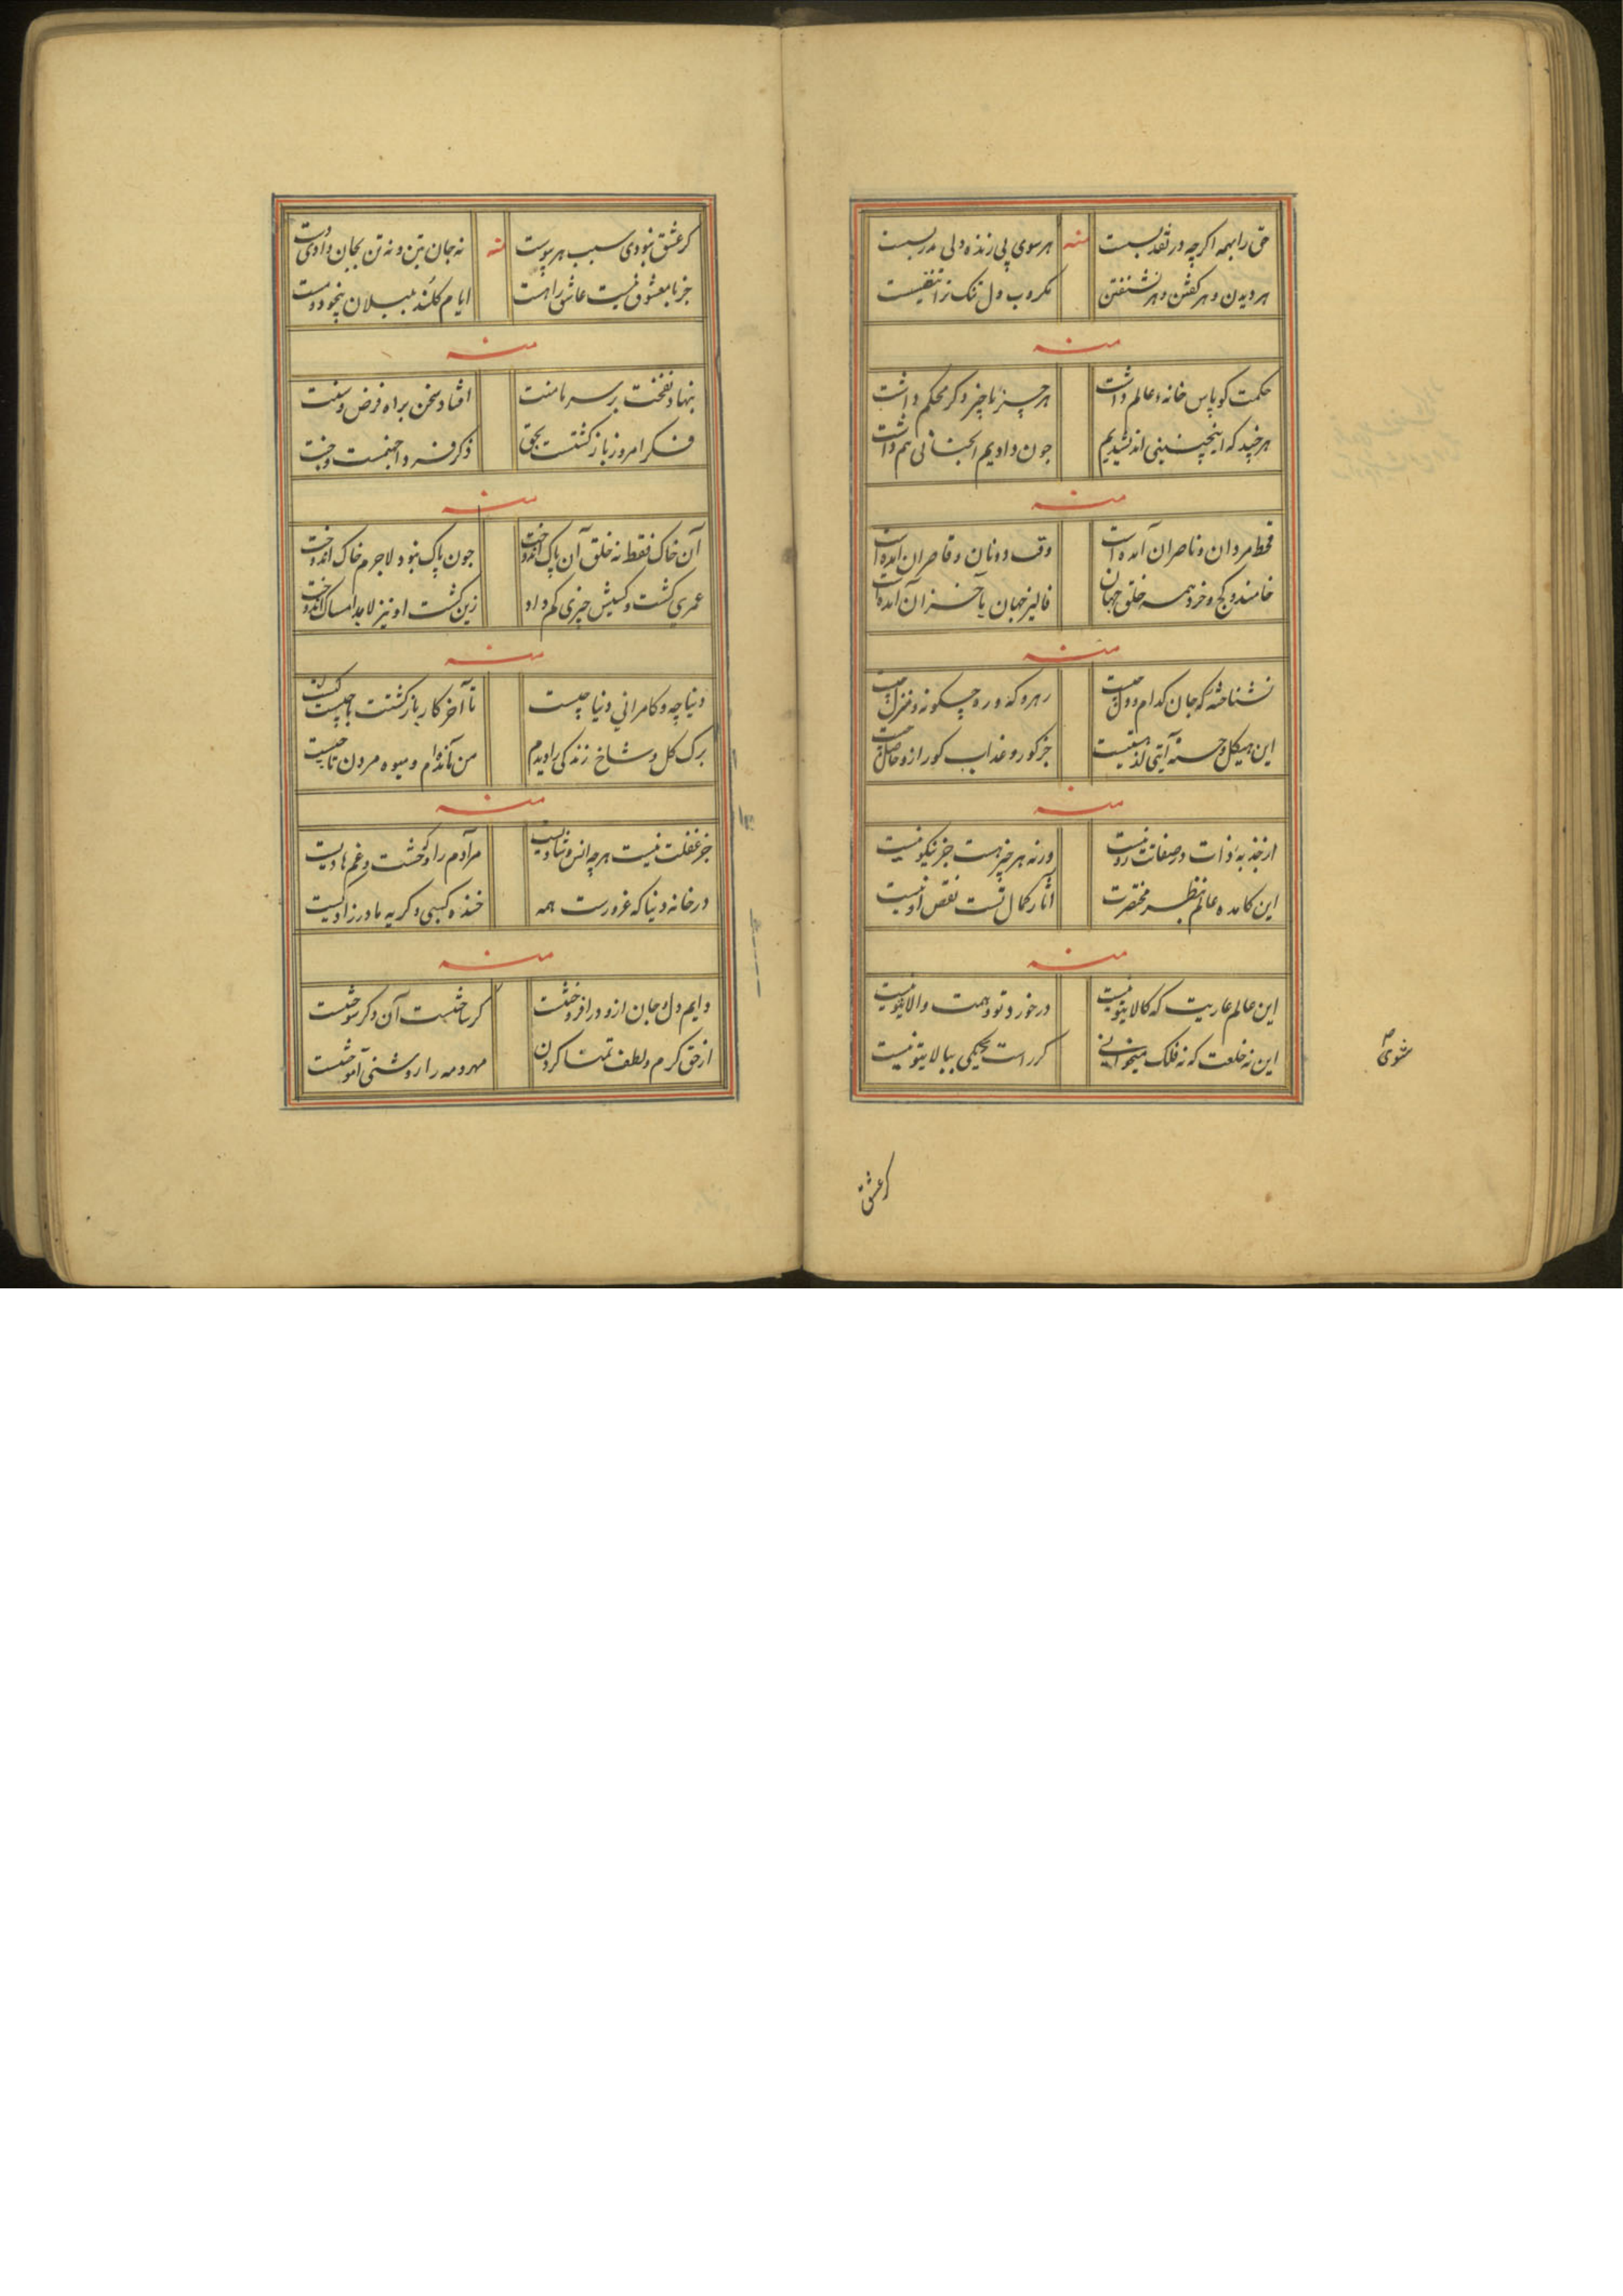 حق را همه اگرچه در تقدیست هر سوی پی زنده دلی مدرسیست
منه
هر دیدن و هر گفتن و هر نشنفتن مکروب دل تنک ترا تنفیسیست
منه
حکمت کو پاس خانهٔ عالم داشت هر چیز ناچیز دگر محکم داشت
هرچند که اینچنین نمی اندیشیدیم چون دادیم آنچنانی هم داشت
منه
قحط مردان و ناصران آمده است وقت دونان و قاصران آمده است
خامند و کج و خرد همه خلق جهان فالیز جهان بآخر آن آمده است
منه
نشناخته که جان کدام و دل چیست رهرو که و ره چگونه و منزل چیست
این هیکل و جز کور و عذاب کور ازو حاصل چیست
منه
از جذبهٔ ذات در صفات رو نیست ورنه هر چیز هست جز نیکو نیست
این کامده عالم بنظر مختصرت آثار کمال تست نقص او نیست
منه
این عالم عاریت که کالا بتو نیست در خورد تو و همت والا بتو نیست
این نه خلعت که نه فلک میخوانی گر راست بحکمی ببالا بتو نیست
مثنوی
گر عشق
گر عشق نبودی سبب هر پیوست نه جان بتن و نه تن بجان دادی دست
منه
جز با معشوق نیست عاشق را هست ایام گلند بلبلان بیخود و مست
منه
بنهاد نفخت بر سر ما منت افتاد سخن براه فرض و سنت
فکر امروز بازگشتست بحق ذکر فردا جهنمست و جنت
منه
آن خاک فقط نه خلق آن پاک اندوخت چون پاک نبود لاجرم خاک اندوخت
عمری گشت و کسیش چیزی کم داد زین گشت او نیز لابد امساک اندوخت
منه
دنیا چه و کامرانی دنیا چیست تا آخر کار بازگشتت با کیست
برگ گل و شاخ زندگی را دیدم من مانده‌ام و میوه مردن تا چیست
منه
جز غفلت نیست هرچه انس و شادیست مر آدم را وحشت و غم هادیست
در خانه دنیا که غرورست همه خنده کسبی و گریه مادرزادیست
منه
دایم دل و جان ازو در افروختنست گر ساختنست آن و گر سوختنست
از حق کرم و لطف تمنا کردن مهر و مه را روشنی آموختنست